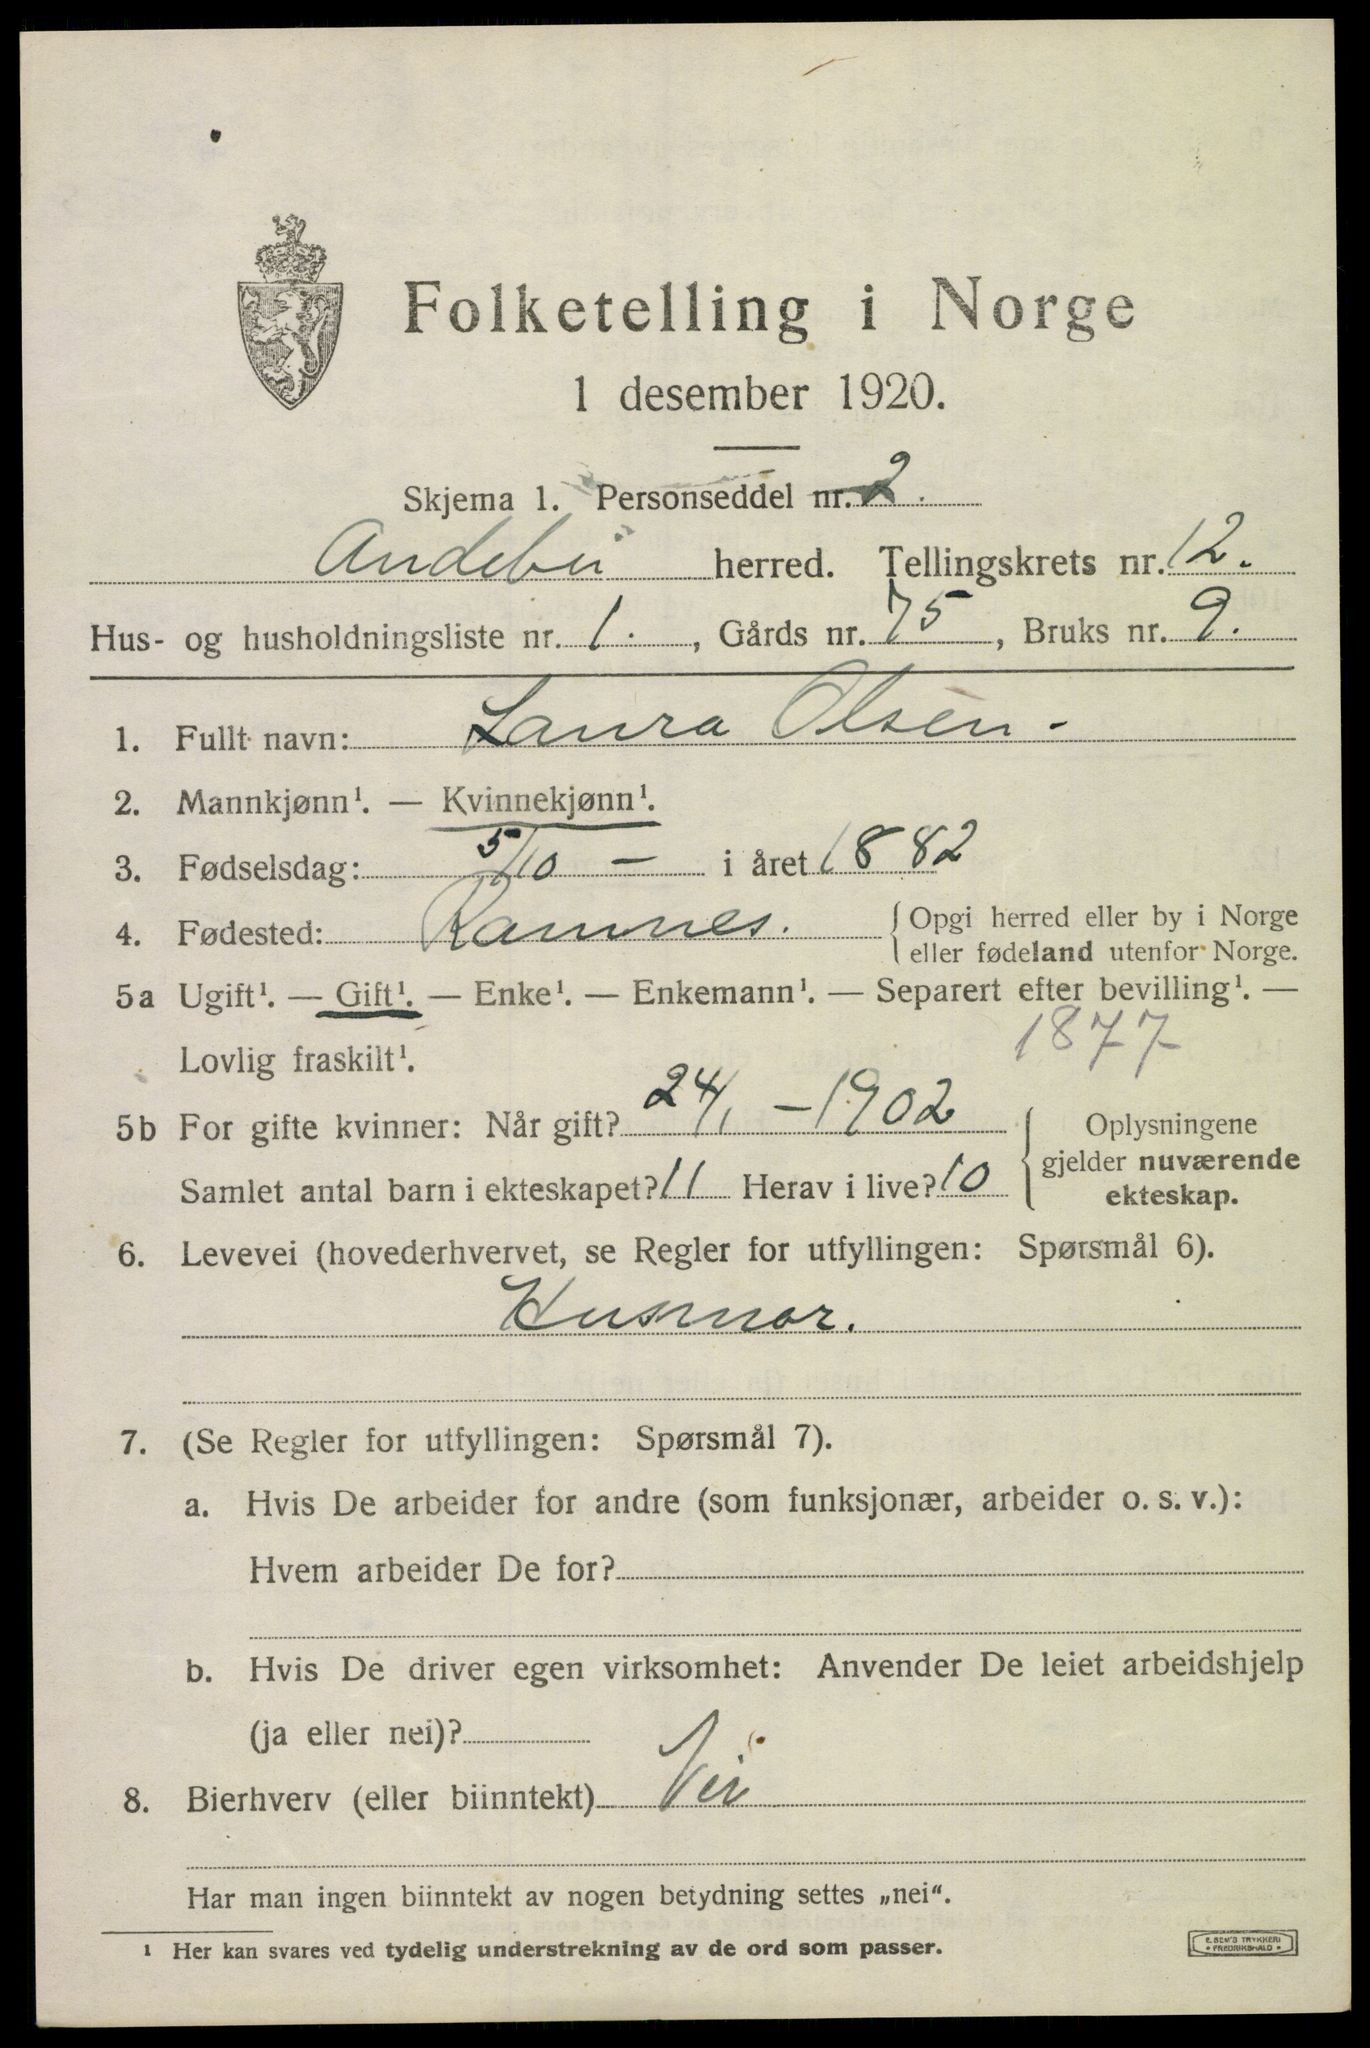 Folketelling i Norge
1 desember 1920.
Skjema 1. Personseddel nr. 2.
Andebu herred. Tellingskrets nr. 12.
Hus- og husholdningsliste nr. 1. , Gårds nr. 75 , Bruks nr. 9.
1. Fullt navn: Laura Olsen.
2. Mannkjønn¹. — Kvinnekjønn¹.
3. Fødselsdag: 5/10 — i året 1882
4. Fødested: Ramnes. { Opgi herred eller by i Norge
eller fødeland utenfor Norge.
5a Ugift¹. — Gift¹. — Enke¹. — Enkemann¹. — Separert efter bevilling¹. —
Lovlig fraskilt¹. 1877
5b For gifte kvinner: Når gift? 24/1 – 1902
Samlet antal barn i ekteskapet? 11 Herav i live? 10
Oplysningene
gjelder nuværende
ekteskap.
6. Levevei (hovederhvervet, se Regler for utfyllingen: Spørsmål 6).
Husmor.
7. (Se Regler for utfyllingen: Spørsmål 7).
a. Hvis De arbeider for andre (som funksjonær, arbeider o. s. v.):
Hvem arbeider De for?
b. Hvis De driver egen virksomhet: Anvender De leiet arbeidshjelp
(ja eller nei)?
8. Bierhverv (eller biinntekt) Nei
Har man ingen biinntekt av nogen betydning settes „nei“.
¹ Her kan svares ved tydelig understrekning av de ord som passer.
E. SEM'S TRYKKERI
FREDRIKSHALD